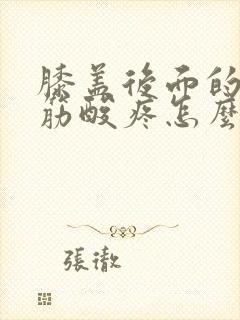 膝盖後面的
筋酸疼怎麼
張澈